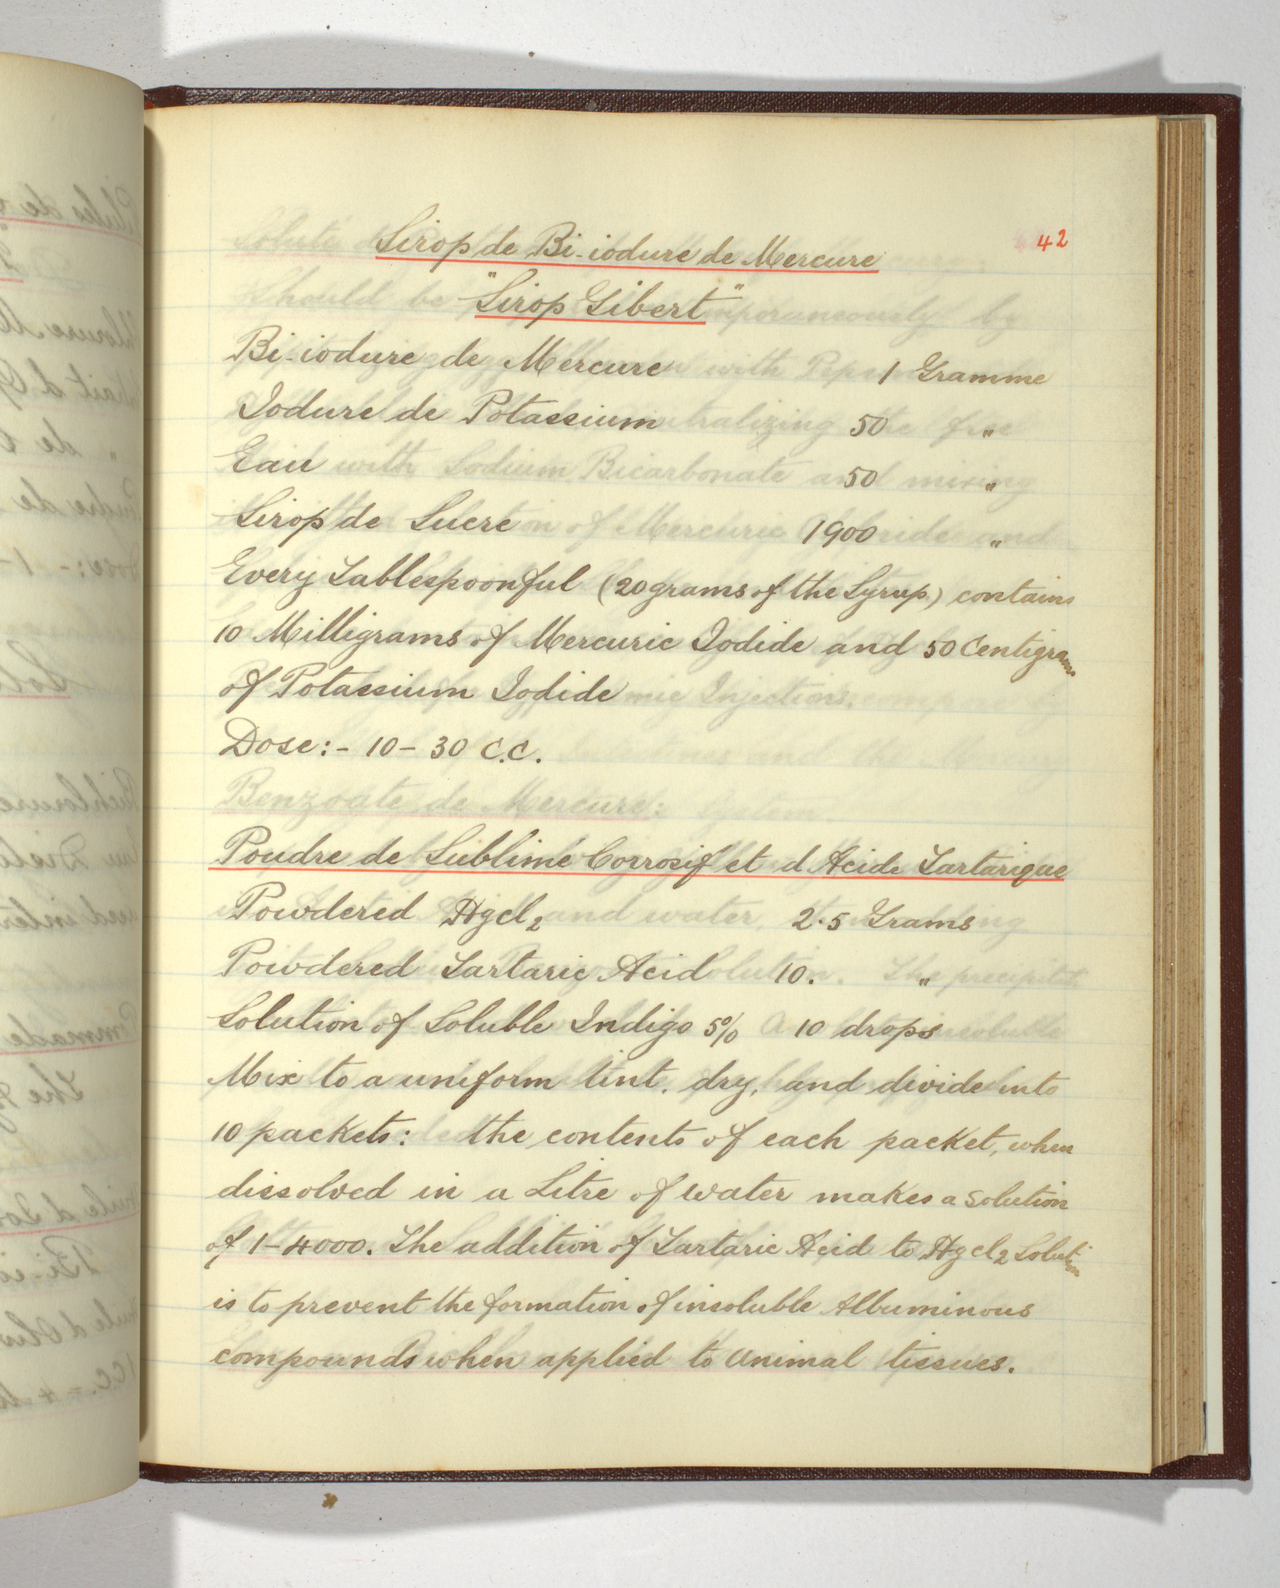 42
Sirop de Bi-iodure de Mercure
"Sirop Gibert"
Bi-iodure de Mercure 1 Gramme
Iodure de Potassium 50 "
Eau 50 "
Sirop de Sucre 1900 "
Every Tablespoonful (20 grams of the Syrup.) contains
10 Milligrams of Mercuric Iodide and 50 Centigrams
of Potassium Iodide
Dose:- 10 - 30 C.C.
Poudre de Sublimé Corrosif et d Acide Tartarique
Powdered Hgcl2 2.5 Grams
Powdered Tartaric Acid 10. "
Solution of Soluble Indigo 5% 10 drops
Mix to a uniform tint. dry, and divide into
10 packets: the contents of each packet, when
dissolved in a Litre of water makes a solution
of 1-4000. The addition of Tartaric Acid to Hgcl2 Solution
is to prevent the formation of insoluble Albuminous
compounds when applied to animal tissues.